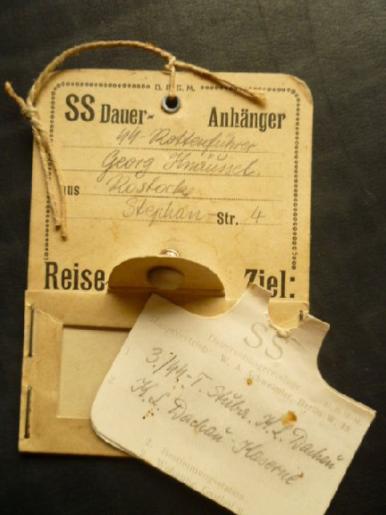 D. R. G. M.
SS Dauer- Anhänger
SS-Rottenführer
Georg
aus Rostock
Stephan- Str. 4
Reise Ziel:
SS
3./SS-T. Stuba. K. L. Dachau
K. L. Dachau-Kaserne